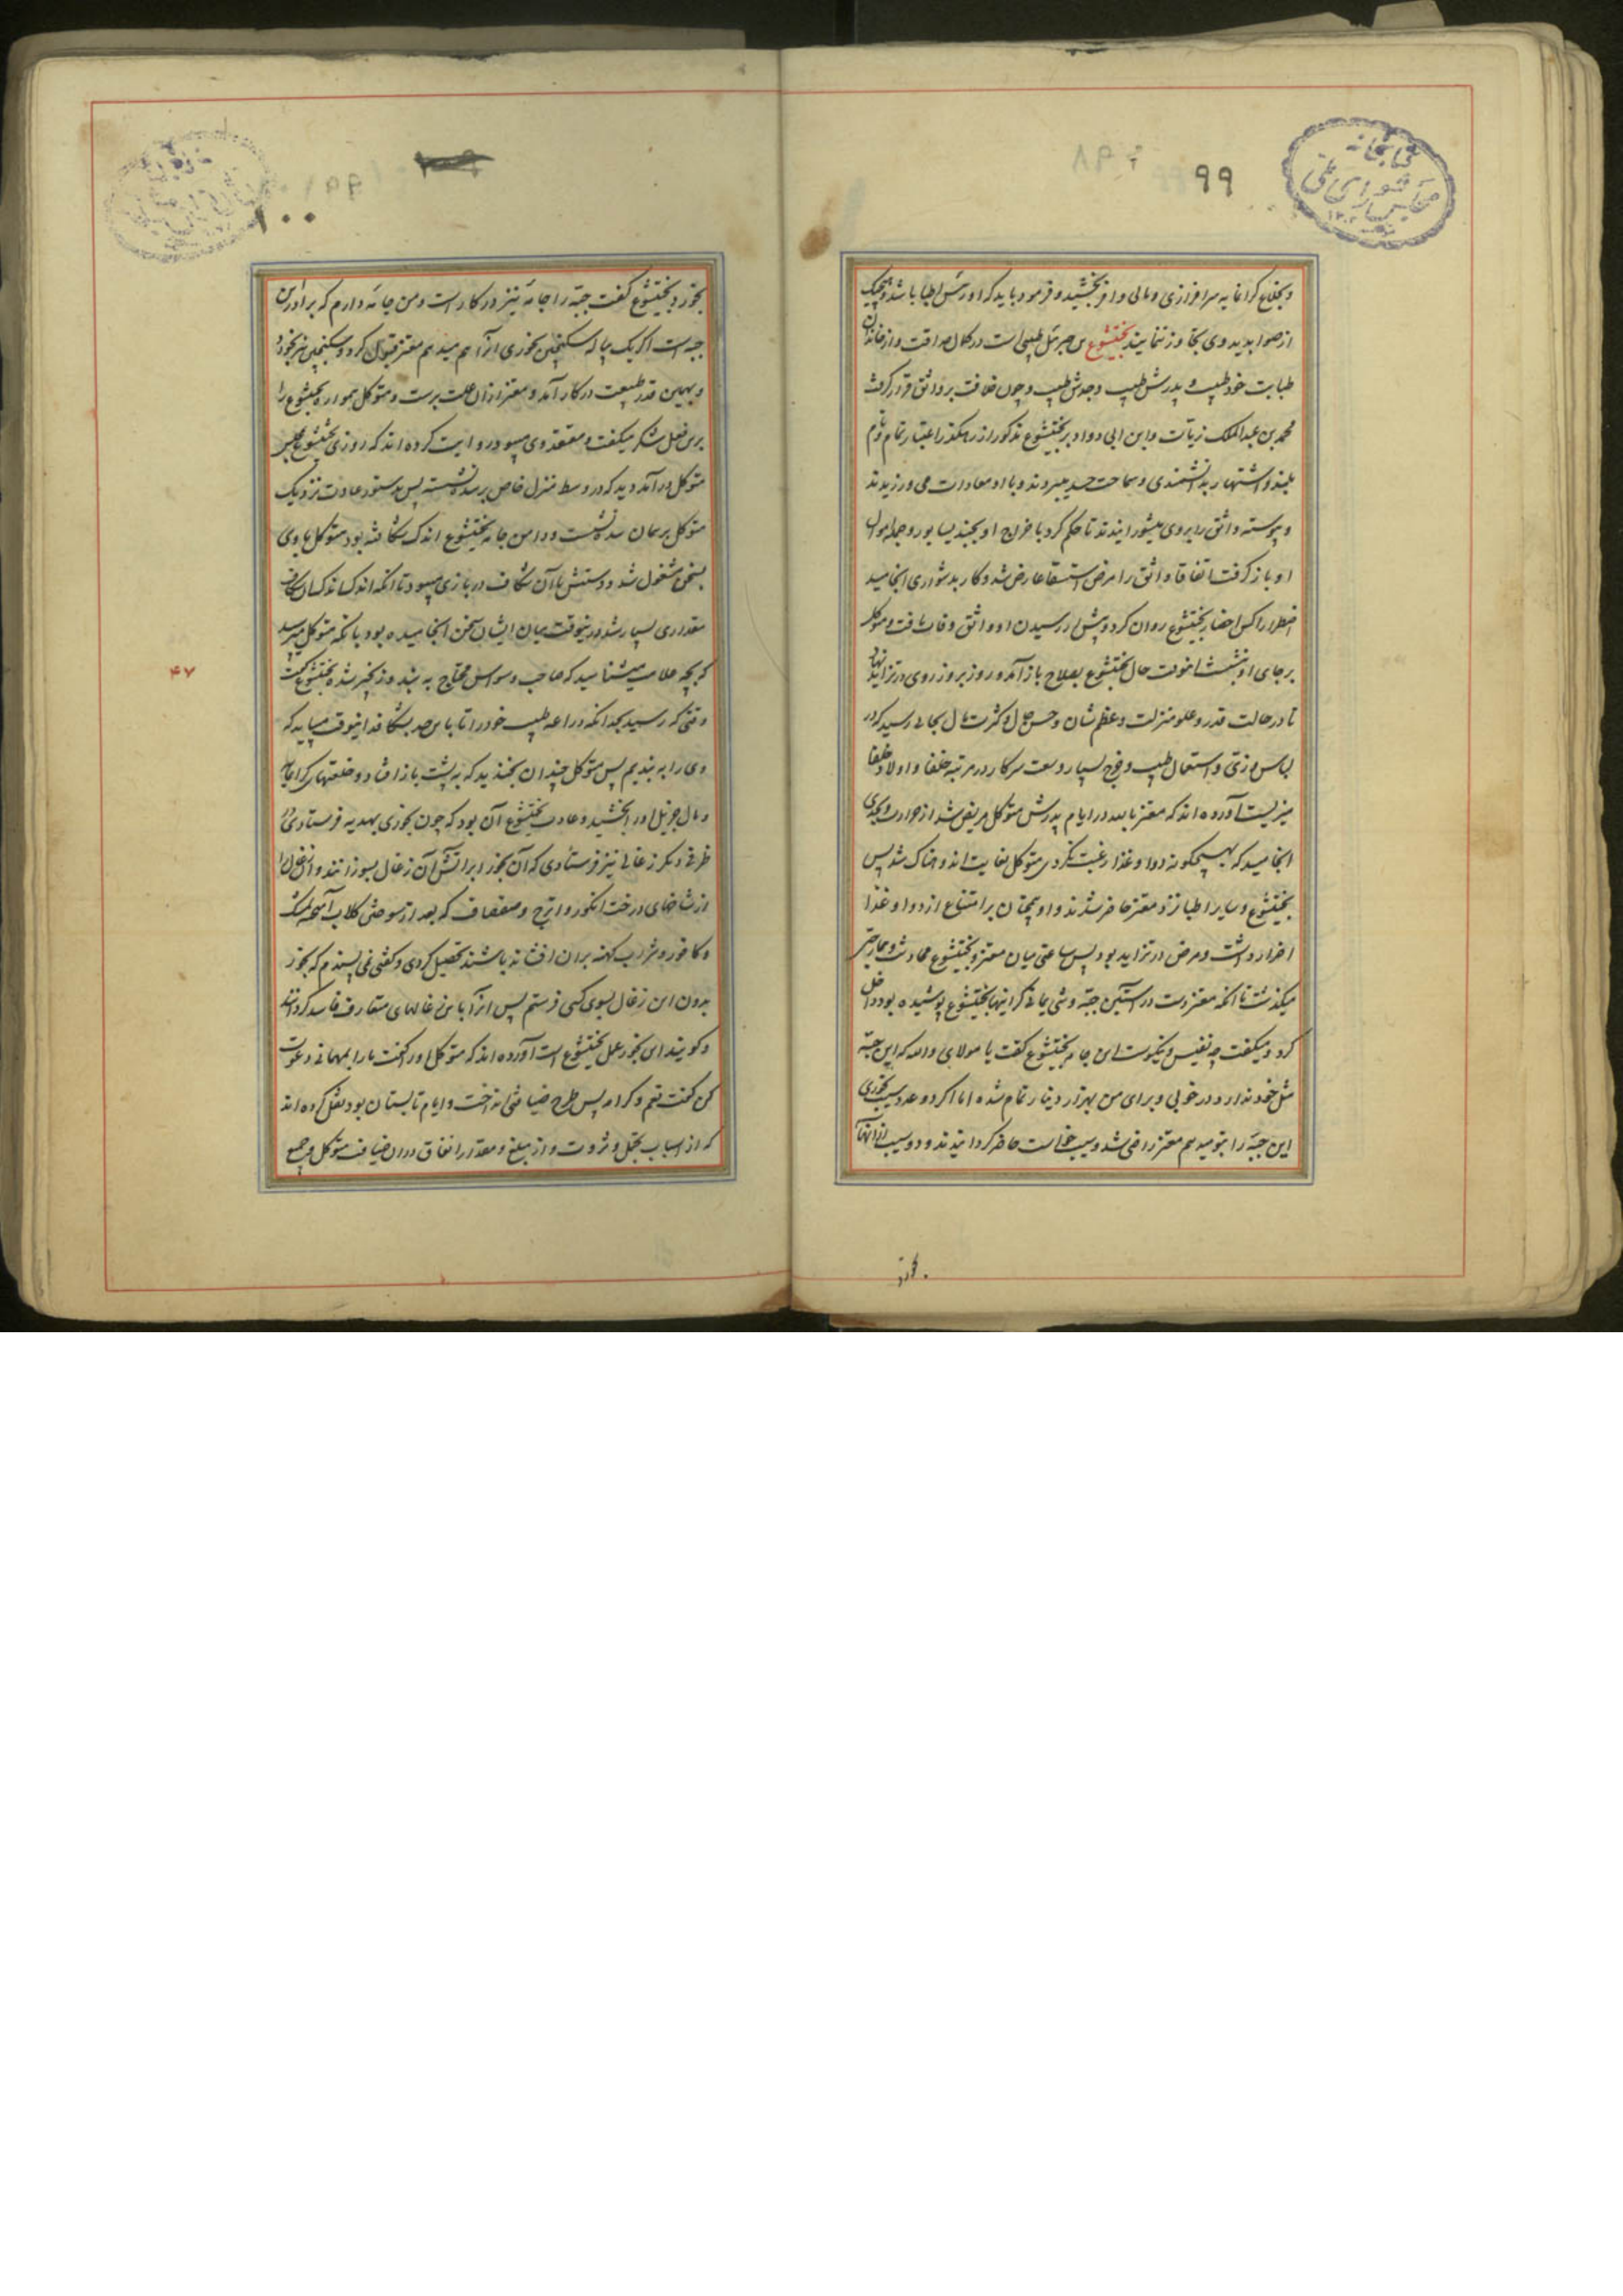 ۹۹
کتابخانه
مجلس شورای ملی
و بخلاع کرانمایه سرافرازی و مالی وافر بخشید و فرمود باید که او رئیس اطبا باشد و هیچیک
از صوابدید وی تجاوز ننمایند بختیشوع بن جبرئیل طبیبی است در کمال صداقت و از خاندان
طبابت خود طبیب و پدرش طبیب و جدش طبیب و چون خلافت بر واثق قرار گرفت
محمد بن عبدالملک زیات و ابن ابی دواد بر بختیشوع مذکور از رهگذر اعتبار تمام و نام
بلند و اشتهار بدانشمندی و سماحت حسد میبردند و با او معادات می ورزیدند
و پیوسته واثق را بر وی میشورانیدند تا حکم کرد باخراج او بجندیسابور و جمله اموال
او باز گرفت اتفاقا واثق را مرض استسقا عارض شد و کار بدشواری انجامید
اضطرارا کس باحضار بختیشوع روان کرد و پیش از رسیدن او واثق وفات یافت و متوکل
بر جای او بنشست انوقت حال بختیشوع بصلاح باز آمد و روز بروز روی در تزاید نهاد
تا در جلالت قدر و علو منزلت و عظم شان و حسن حال و کثرت مال بجائی رسید که در
لباس و زی و استعمال طیب و فرح بسیار و سعت سرکار در مرتبه خلفا و اولاد خلفا
میزیست آورده اند که معتز بالله در ایام پدرش متوکل مریض شد از حرارت بجدی
انجامید که بهیچگونه دوا و غذا رغبت نکردی متوکل بغایت اندوهناک شد پس
بختیشوع و سایر اطبا نزد معتز حاضر شدند و او همچنان بر امتناع از دوا و غذا
اصرار داشت و مرض در تزاید بود پس ساعتی میان معتز و بختیشوع محادثه و ممازحه
میگذشت تا انکه معتز دست در آستین جبه وشی یمانی گرانبها بختیشوع پوشیده بود داخل
کرد و میگفت چه نفیس و نیکوست این جامه بختیشوع گفت یا مولای والله که این جبه
مثل خود ندارد در خوبی و برای من بهزار دینار تمام شده اما اگر دو عدد سیب بخوری
این جبه را بتو میدهم معتز راضی شد و سیب خواست حاضر گردانیدند و دو سیب از انها
بخورد
۱۰۰
بخورد و بختیشوع گفت جبه را جامه نیز در کار است و من جامه دارم که برادر این
جبه است اگر یک پیاله سکنجبین بخوری انرا هم میدهم معتز قبول کرد و سکنجبین نیز بخورد
و بهمین قدر طبیعت در کار آمد و معتز از ان علت برست و متوکل همواره بختیشوع را
برین فعل شکر میگفت و معتقد وی میبود روایت کرده اند که روزی بختیشوع بمجلس
متوکل در آمد دید که در وسط منزل خاص بر سده نشسته پس بدستور عادت نزدیک
متوکل بر همان سده نشست و دامن جامه بختیشوع اندک شکافته بود متوکل با وی
بسخن مشغول شد و دستش با آن شکاف در بازی میبود تا انکه اندک اندک ان شکاف
مقداری بسیار شد در ینوقت میان ایشان سخن انجامیده بود بانکه متوکل میپرسد
که بچه علامت میشناسید که صاحب وسواس محتاج به بند و زنجیر شده بختیشوع گفت
وقتی که رسید بحد انکه دراعه طبیب خود را تا پایین صدر بشکافد انیوقت میباید که
وی را به بندیم پس متوکل چندان بخندید که به پشت باز افتاد و خلعتهای گرانمایه
و مال جزیل او را بخشید و عادت بختیشوع آن بود که چون بخوری بهدیه فرستادی در
ظرفی دیگر زغالی نیز فرستادی که آن بخور را بر آتش آن زغال بسوزانند و ان زغال را
از شاخهای درخت انگور و اترج و صفصاف که بعد از سوختن گلاب آمیخته بمشک
و کافور و شراب کهنه بران افشانده باشند تحصیل کردی و گفتی نمی پسندم که بخور
بدون این زغال بسوی کسی فرستم پس انرا با زغالهای متعارف فاسد گردانند
و گویند این بخور عمل بختیشوع است آورده اند که متوکل او را گفت ما را بمهمانی دعوت
کن گفت نعم و کرامة پس طرح ضیافتی انداخت و ایام تابستان بود نقل کرده اند
که از اسباب تجمل و ثروت و از مبلغ و مقدار انفاق دران ضیافت متوکل و جمیع
۴۷